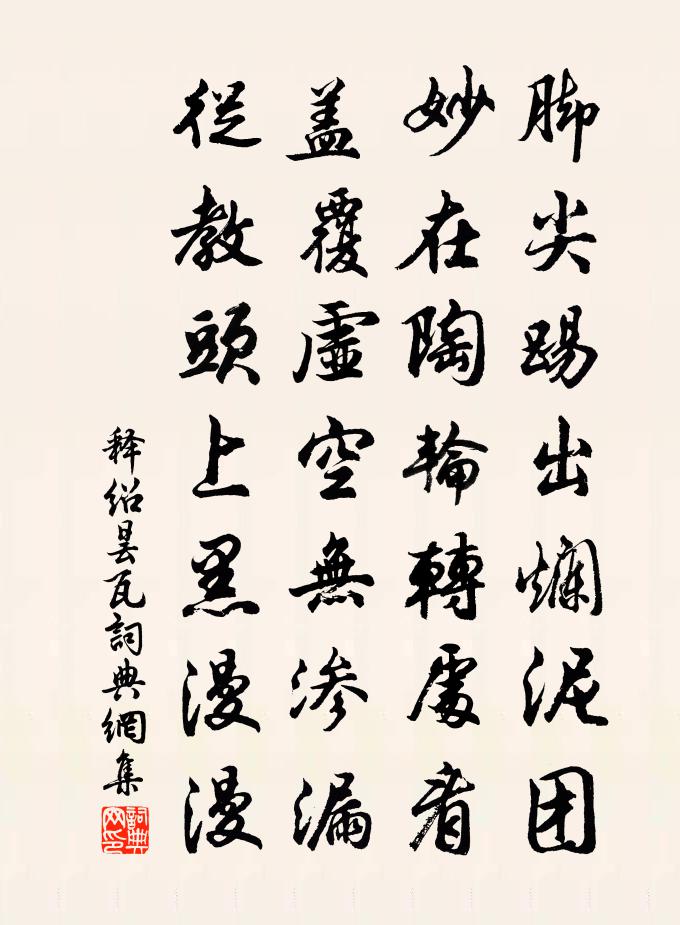 脚尖踢出爛泥团
妙在陶輪轉處看
盖覆虛空無渗漏
從教頭上黑漫漫
释绍曇瓦詞典網集
詞典網印